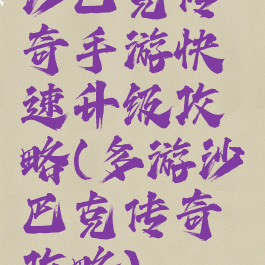 沙巴克传
奇手游快
速升级攻
略(多游沙
巴克传奇
攻略)